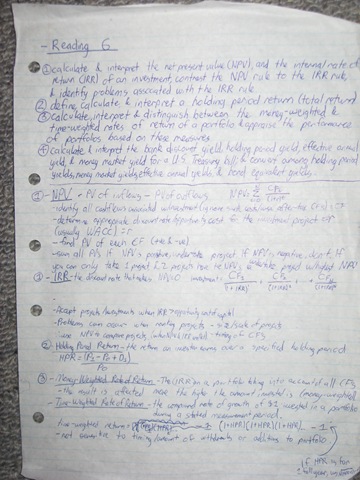 - Reading 6
① calculate & interpret the net present value (NPV), and the internal rate of
return (IRR) of an investment, contrast the NPV rule to the IRR rule,
& identify problems associated with the IRR rule
② define, calculate & interpret a holding period return (total return)
③ calculate, interpret & distinguish between the money-weighted &
time-weighted rates of return of a portfolio & appraise the performance
of portfolios based on these measures
④ calculate & interpret the bank discount yield, holding period yield, effective annual
yield, & money market yield for a US Treasury bill, & convert among holding period
yields, money market yields, effective annual yields, & bond equivalent yields
① - NPV = PV of inflows - PV of outflows
- identify all cashflows associated w/ investment
- determine appropriate discount rate/opportunity cost for the investment project = r
(usually WACC) = r
- find PV of each CF (+ve & -ve)
- sum all PVs if NPV is positive, undertake project. if NPV is negative, don't. If
you can only take 1 project & 2 projects have +ve NPVs, undertake project w/ highest NPV
- IRR - the discount rate that makes NPV=0
- Accept projects/investments when IRR > opportunity cost of capital
- Problems can occur when ranking projects - size/scale of projects
- timing of CFs
② - Holding Period Return - the return an investor earns over a specified holding period
HPR = (P₁ - P₀ + D₁)
P₀
③ - Money-Weighted Rate of Return - the IRR on a portfolio taking into account all CFs
- the result is affected by the amount invested is (money-weighted)
- Time-Weighted Rate of Return - the compound rate of growth of $1 invested in a portfolio
during a stated measurement period.
time-weighted return = (1+HPR)(1+HPR)(1+HPR)... - 1
- not sensitive to timing/amount of withdrawls or additions to portfolio
if HPR is for